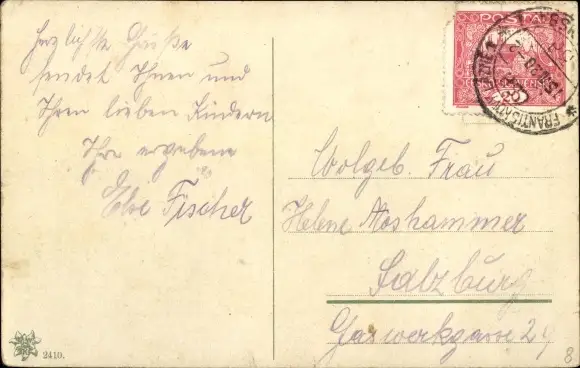 Herzlichste Grüße
sendet Ihnen und
Ihren lieben Kindern
Ihre ergebene
Else Fischer
Wolgeb. Frau
Helene Moshammer
Salzburg
Gaswerkgasse 29
POSTA
2410.
8